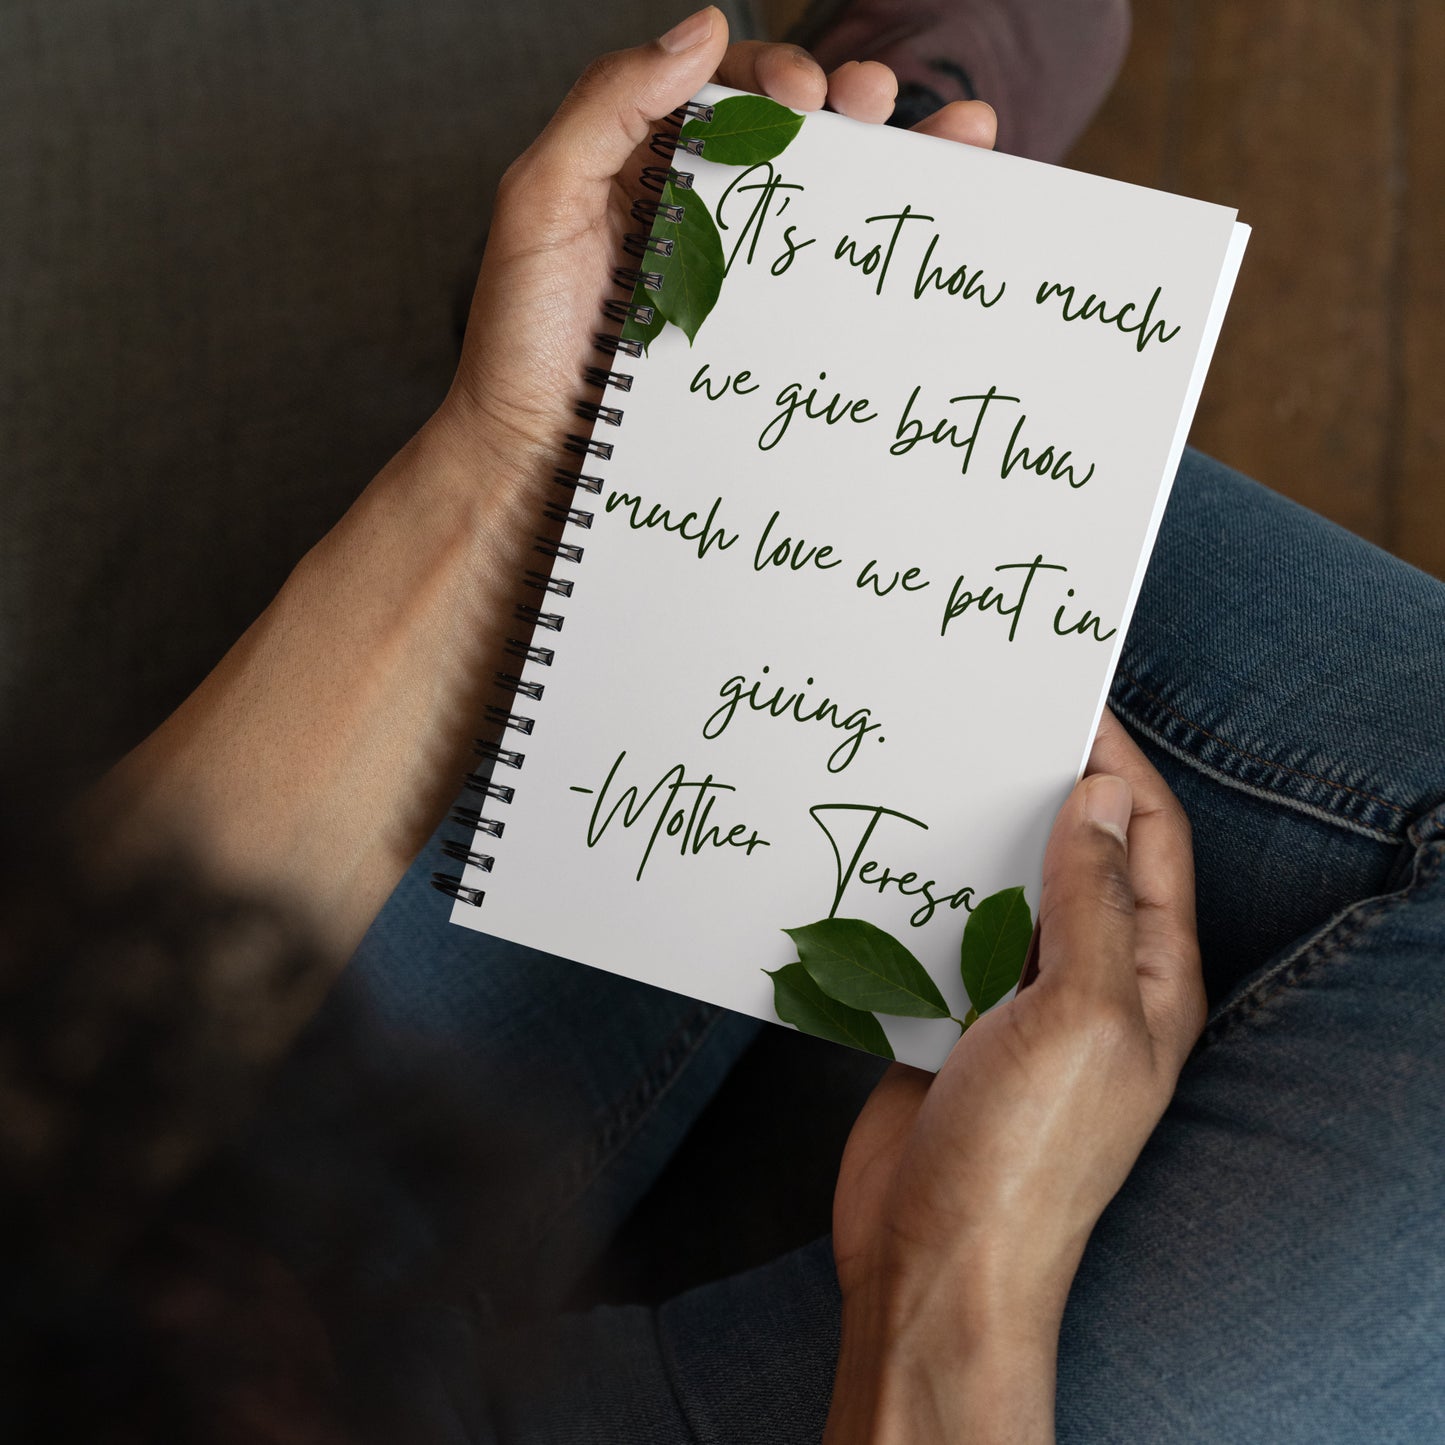 It's not how much
we give but how
much love we put in
giving.
-Mother Teresa